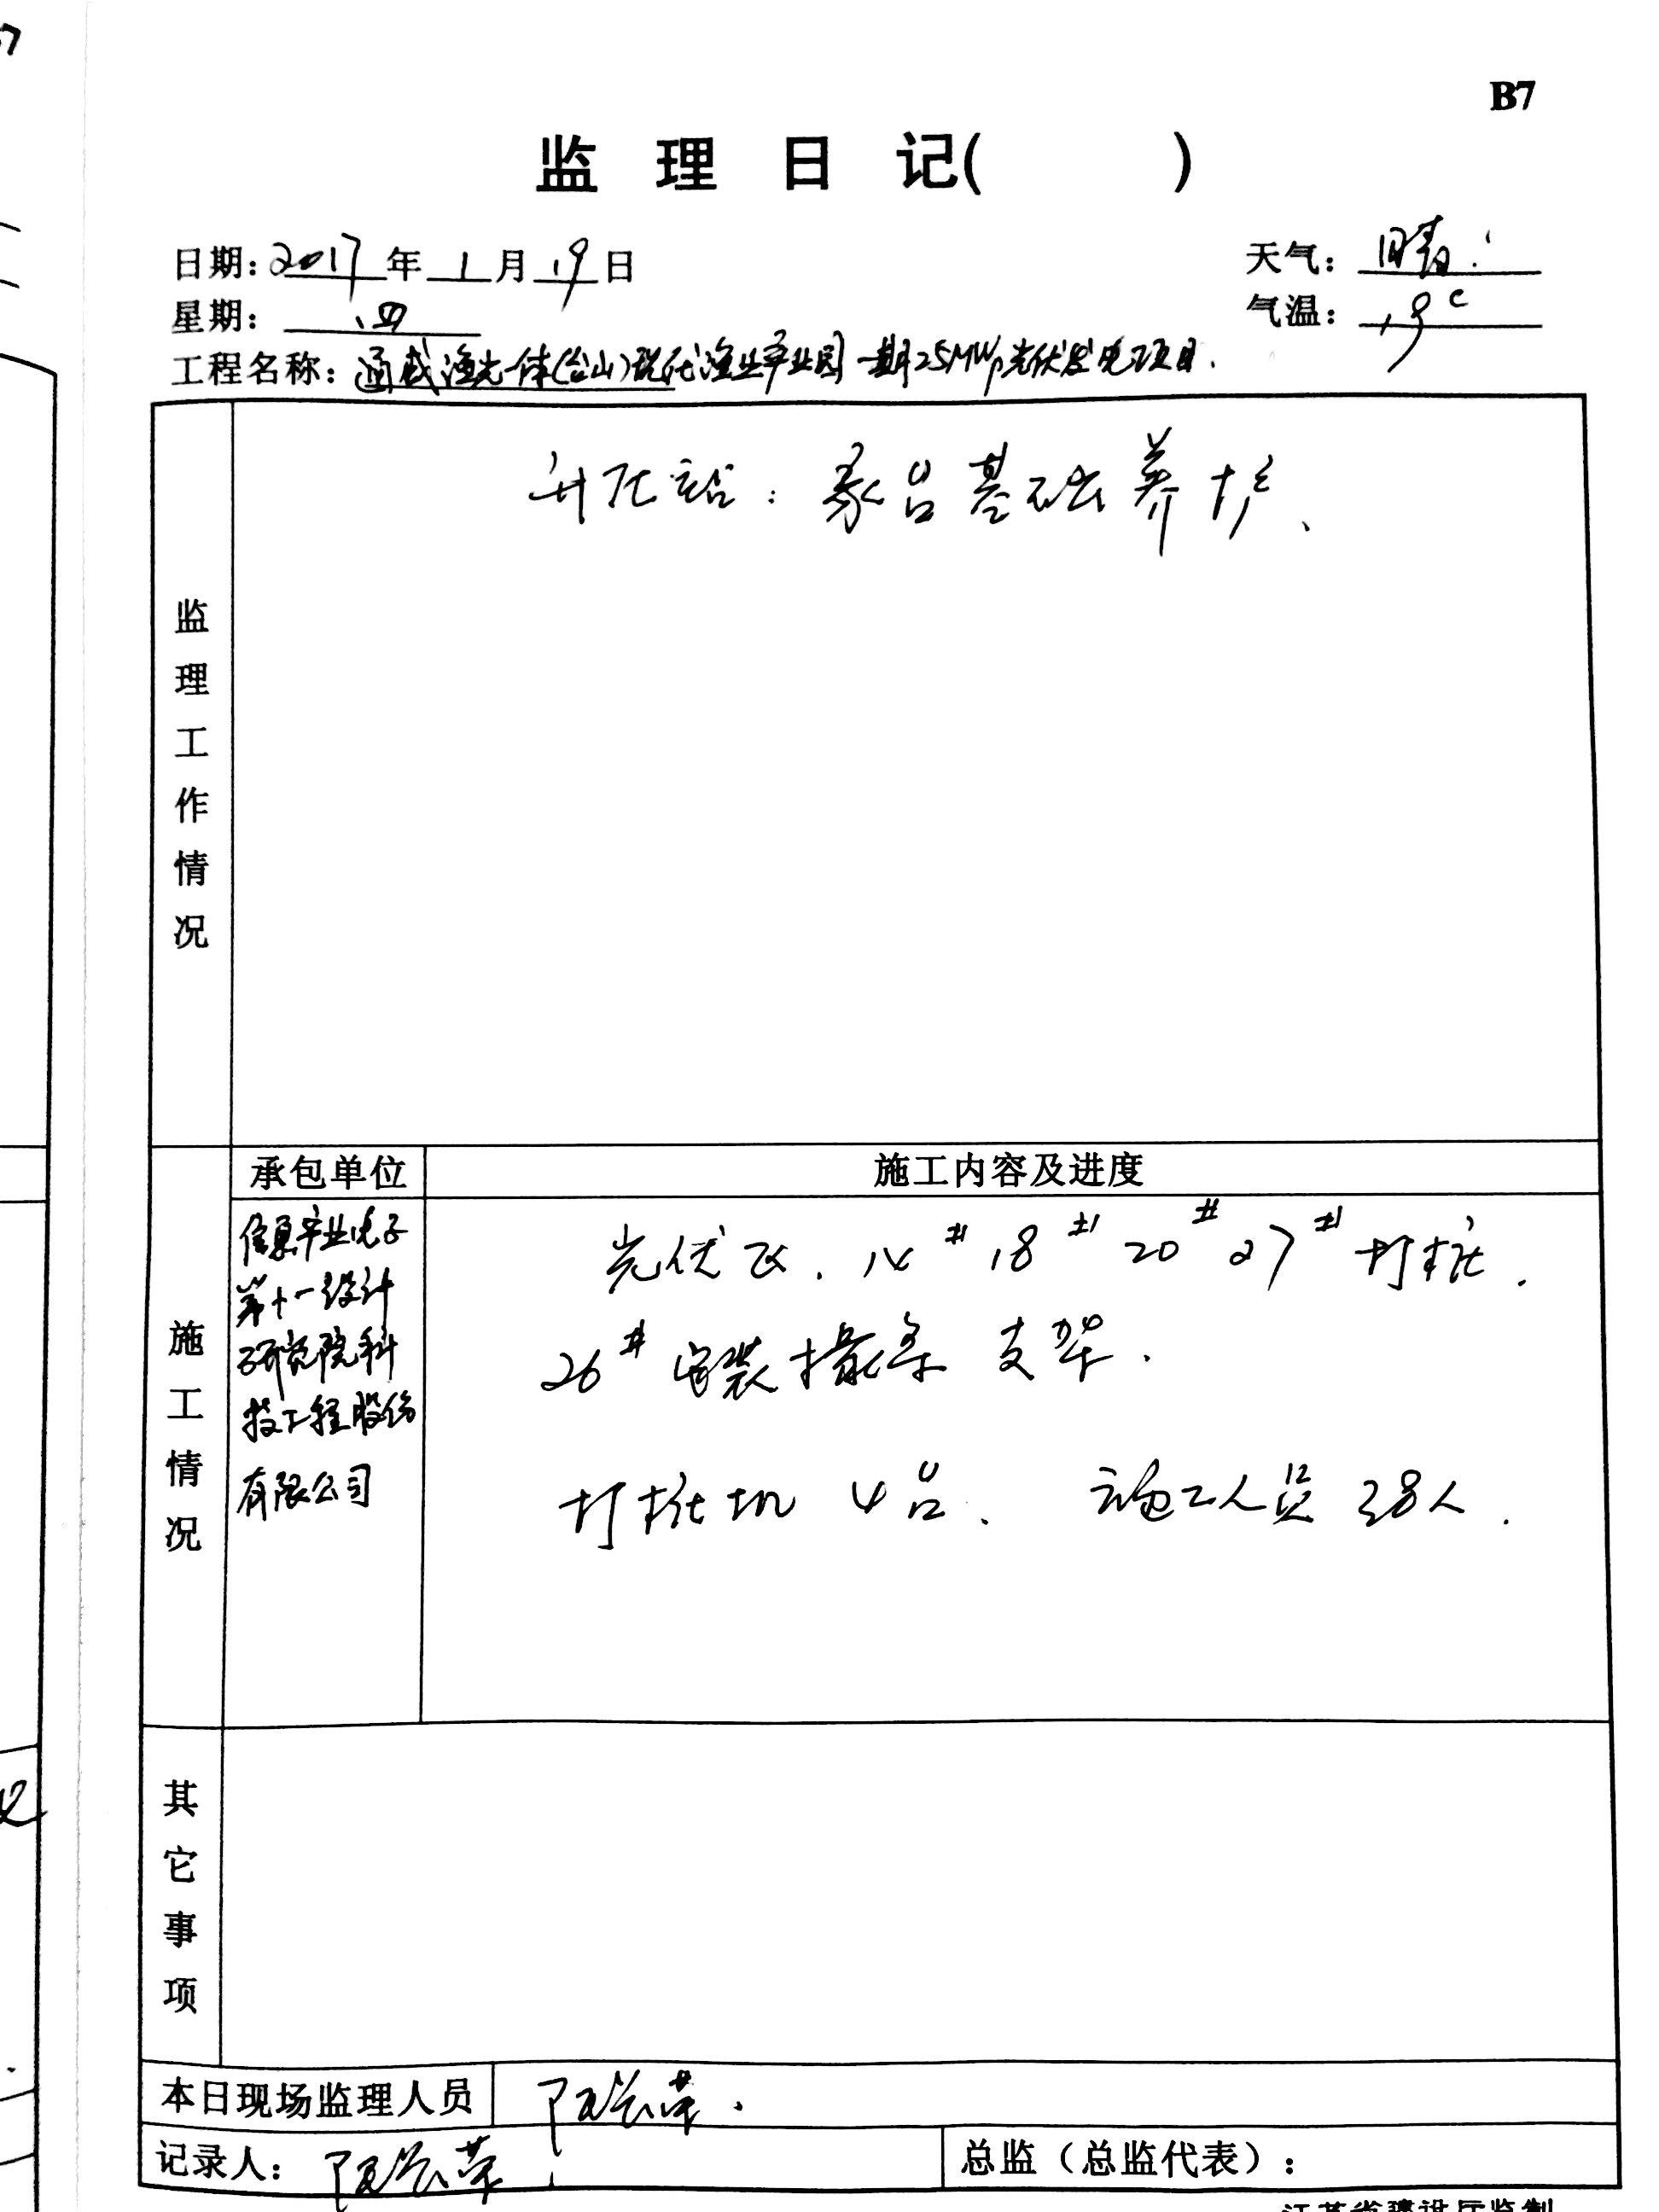 B7
监 理 日 记( )
日期:2017年1月19日
天气: 晴.
星期: 四
气温: 19℃
工程名称: 通威渔光一体(台山)现代渔业产业园一期25MWp光伏发电项目.
升压站: 承台基础养护、
监理工作情况
承包单位
施工内容及进度
信息产业电子
第十一设计
研究院科
技工程股份
有限公司
光伏区. 14# 18# 20# 27# 打桩.
26# 安装檩条 支架.
打桩机 4台. 施工人员 38人.
施工情况
其它事项
本日现场监理人员
记录人:
总监(总监代表):
江苏省建设厅监制